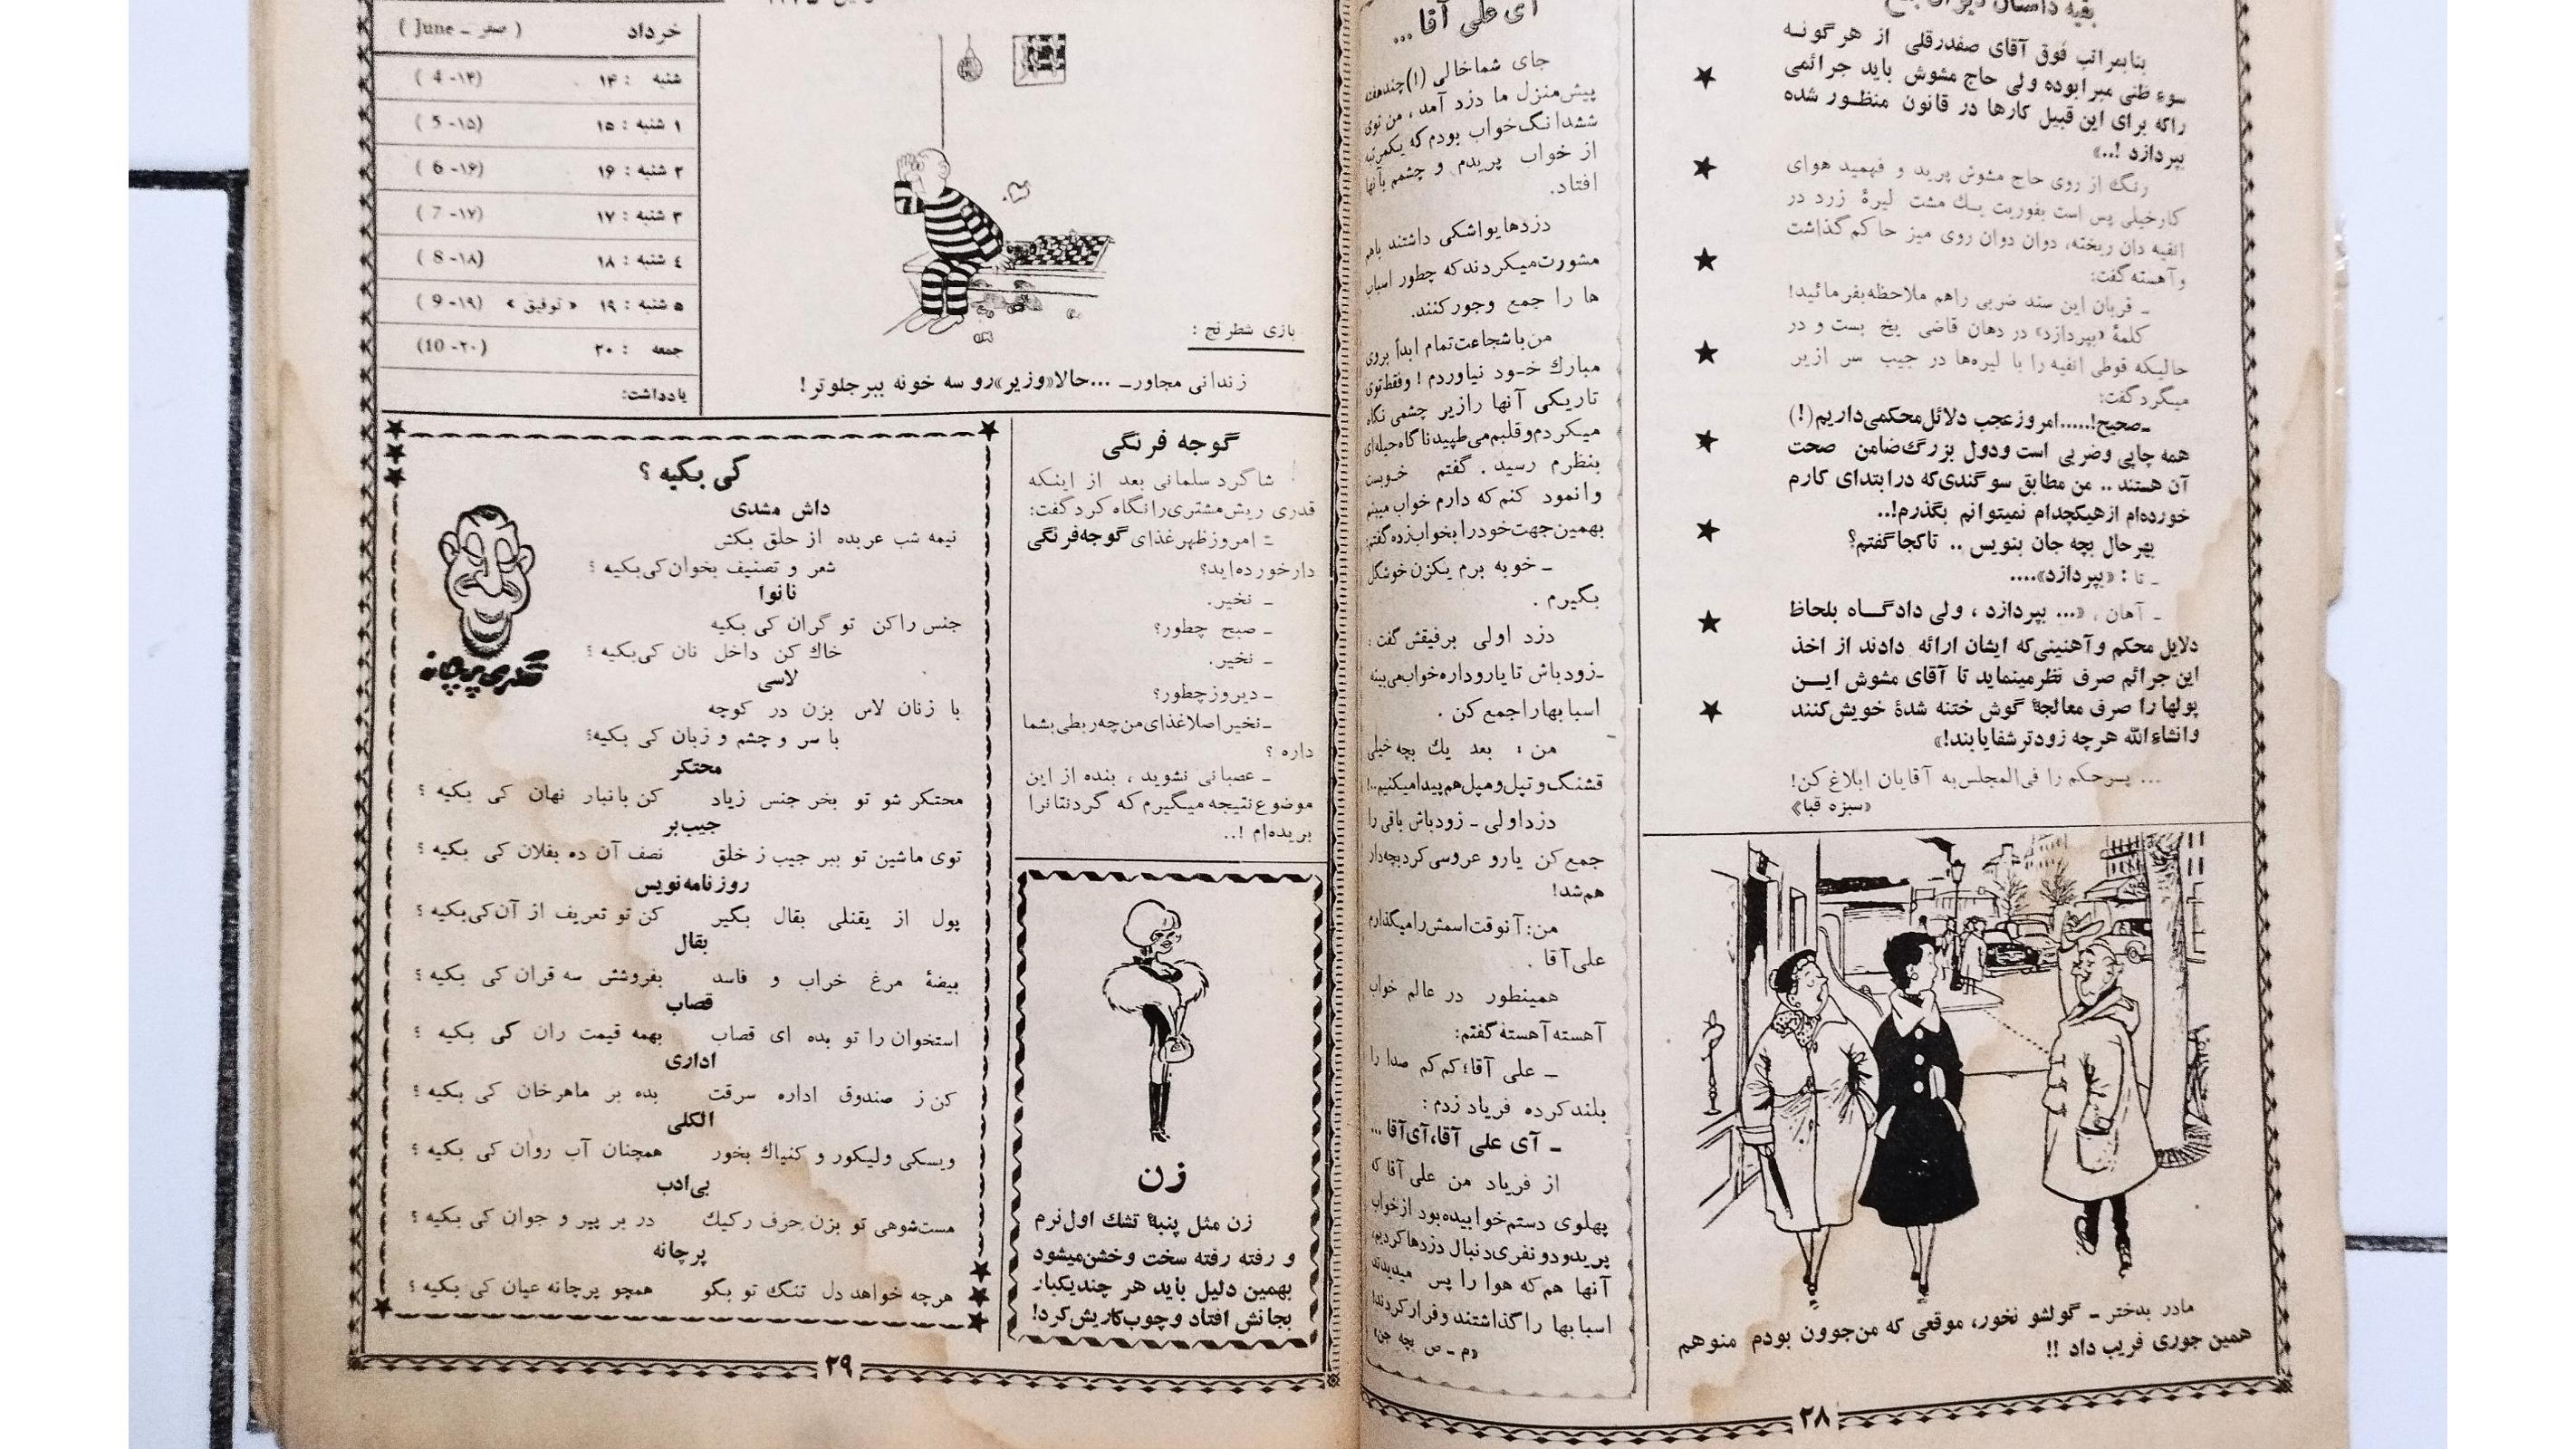 بنابمراتب فوق آقای صفدرقلی از هر گونه
سوء ظنی مبرا بوده ولی حاج مشوش باید جرائمی
راکه برای این قبیل کارها در قانون منظور شده
بپردازد !..»
رنگ از روی حاج مشوش پرید و فهمید هوای
کارخیلی پس است بفوریت یک مشت لیرهٔ زرد در
انفیه دان ریخته، دوان دوان روی میز حاکم گذاشت
و آهسته گفت:
ـ قربان این سند ضربی راهم ملاحظه بفرمائید!
کلمهٔ «بپردازد» در دهان قاضی یخ بست و در
حالیکه قوطی انفیه را با لیره‌ها در جیب سر ازیر
میگرد گفت:
ـ صحیح!.....امروز عجب دلائل محکمی داریم(!)
همه چاپی وضربی است و دول بزرگ ضامن صحت
آن هستند .. من مطابق سوگندی که در ابتدای کارم
خورده‌ام از هیکچدام نمیتوانم بگذرم!..
بهرحال بچه جان بنویس .. تاکجا گفتم؟
ـ تا : «بپردازد»....
ـ آهان ، «... بپردازد ، ولی دادگاه بلحاظ
دلایل محکم و آهنینی که ایشان ارائه دادند از اخذ
این جرائم صرف نظر مینماید تا آقای مشوش ایـن
پولها را صرف معالجهٔ گوش ختنه شدهٔ خویش کنند
و انشاءالله هرچه زودتر شفا یابند!»
... پسر حکم را فی‌المجلس به آقایان ابلاغ کن!
«سبزه قبا»
مادر بدختر ـ گولشو نخور، موقعی که من جوون بودم منوهم
همین جوری فریب داد !!
۲۸
آی علی آقا...
جای شما خالی (!) چند هفته
پیش منزل ما دزد آمد ، من توی
ششدانگ خواب بودم که یکمرتبه
از خواب پریدم و چشمم بآنها
افتاد.
دزدها یواشکی داشتند باهم
مشورت میکردند که چطور اسباب
ها را جمع وجور کنند.
من با شجاعت تمام ابدأ بروی
مبارک خـود نیاوردم ! و فقط توی
تاریکی آنها را زیر چشمی نگاه
میکردم و قلبم می‌طپید ناگاه حیله‌ای
بنظرم رسید . گفتم خـوبست
وانمود کنم که دارم خواب میبینم
بهمین جهت خود را بخواب زده گفتم
ـ خوبه برم یکزن خوشگل
بگیرم .
دزد اولی برفیقش گفت :
ـ زودباش تا یارو داره خواب می‌بینه
اسبابهارا جمع کن .
من : بعد یك بچه خیلی
قشنگ و تپل و مپل هم پیدا میکنیم..!
دزد اولی ـ زودباش باقی را
جمع کن یارو عروسی کرد بچه‌دار
هم شد!
من: آنوقت اسمش را میگذارم
علی آقا .
همینطور در عالم خواب
آهسته آهسته گفتم:
ـ علی آقا؛ کم کم صدا را
بلند کرده فریاد زدم :
ـ آی علی آقا، آی آقا ...
از فریاد من علی آقا که
پهلوی دستم خوابیده بود از خواب
پرید و دو نفری دنبال دزدها کردیم،
آنها هم که هوا را پس میدیدند
اسبابها را گذاشتند و فرار کردند!
«م ـ ص بچه جن»
بازی شطرنج :
زندانی مجاورـ ...حالا «وزیر» رو سه خونه ببر جلوتر !
خرداد ( صفر ـ June )
شنبه : ۱۴ (۱۴- 4 )
۱ شنبه : ۱۵ (۱۵- 5 )
۲ شنبه : ۱۶ (۱۶- 6 )
۳ شنبه : ۱۷ (۱۷- 7 )
٤ شنبه : ۱۸ (۱۸- 8 )
۵ شنبه : ۱۹ « توفیق » (۱۹- 9 )
جمعه : ۲۰ (۲۰- 10)
یادداشت:
گوجه فرنگی
شاگرد سلمانی بعد از اینکه
قدری ریش مشتری را نگاه کرد گفت:
ـ امروز ظهر غذای گوجه فرنگی
دار خورده‌اید؟
ـ نخیر.
ـ صبح چطور؟
ـ نخیر.
ـ دیروز چطور؟
ـ نخیر اصلا غذای من چه ربطی بشما
داره ؟
ـ عصبانی نشوید ، بنده از این
موضوع نتیجه میگیرم که گردنتانرا
بریده‌ام !..
زن
زن مثل پنبهٔ تشك اول نرم
و رفته رفته سخت و خشن میشود
بهمین دلیل باید هر چند یکبار
بجانش افتاد و چوب کاریش کرد!
کی بکیه ؟
قنبری پرچانه
داش مشدی
نیمه شب عربده از حلق بکش
شعر و تصنیف بخوان کی بکیه ؟
نانوا
جنس راکن تو گران کی بکیه
خاك کن داخل نان کی بکیه ؟
لاسی
با زنان لاس بزن در کوچه
با سر و چشم و زبان کی بکیه؟
محتکر
محتکر شو تو بخر جنس زیاد کن بانبار نهان کی بکیه ؟
جیب‌بر
توی ماشین تو ببر جیب ز خلق نصف آن ده بفلان کی بکیه ؟
روزنامه‌نویس
پول از یقنلی بقال بگیر کن تو تعریف از آن کی بکیه ؟
بقال
بیضهٔ مرغ خراب و فاسد بفروشش سه قران کی بکیه ؟
قصاب
استخوان را تو بده ای قصاب بهمه قیمت ران کی بکیه ؟
اداری
کن ز صندوق اداره سرقت بده بر ماهرخان کی بکیه ؟
الکلی
ویسکی و لیکور و کنیاك بخور همچنان آب روان کی بکیه ؟
بی‌ادب
مست شو هی تو بزن حرف رکیك در بر پیر و جوان کی بکیه ؟
پرچانه
هرچه خواهد دل تنگ تو بگو همچو پرچانه عیان کی بکیه ؟
۲۹